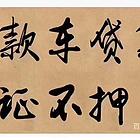 款车贷
证不押